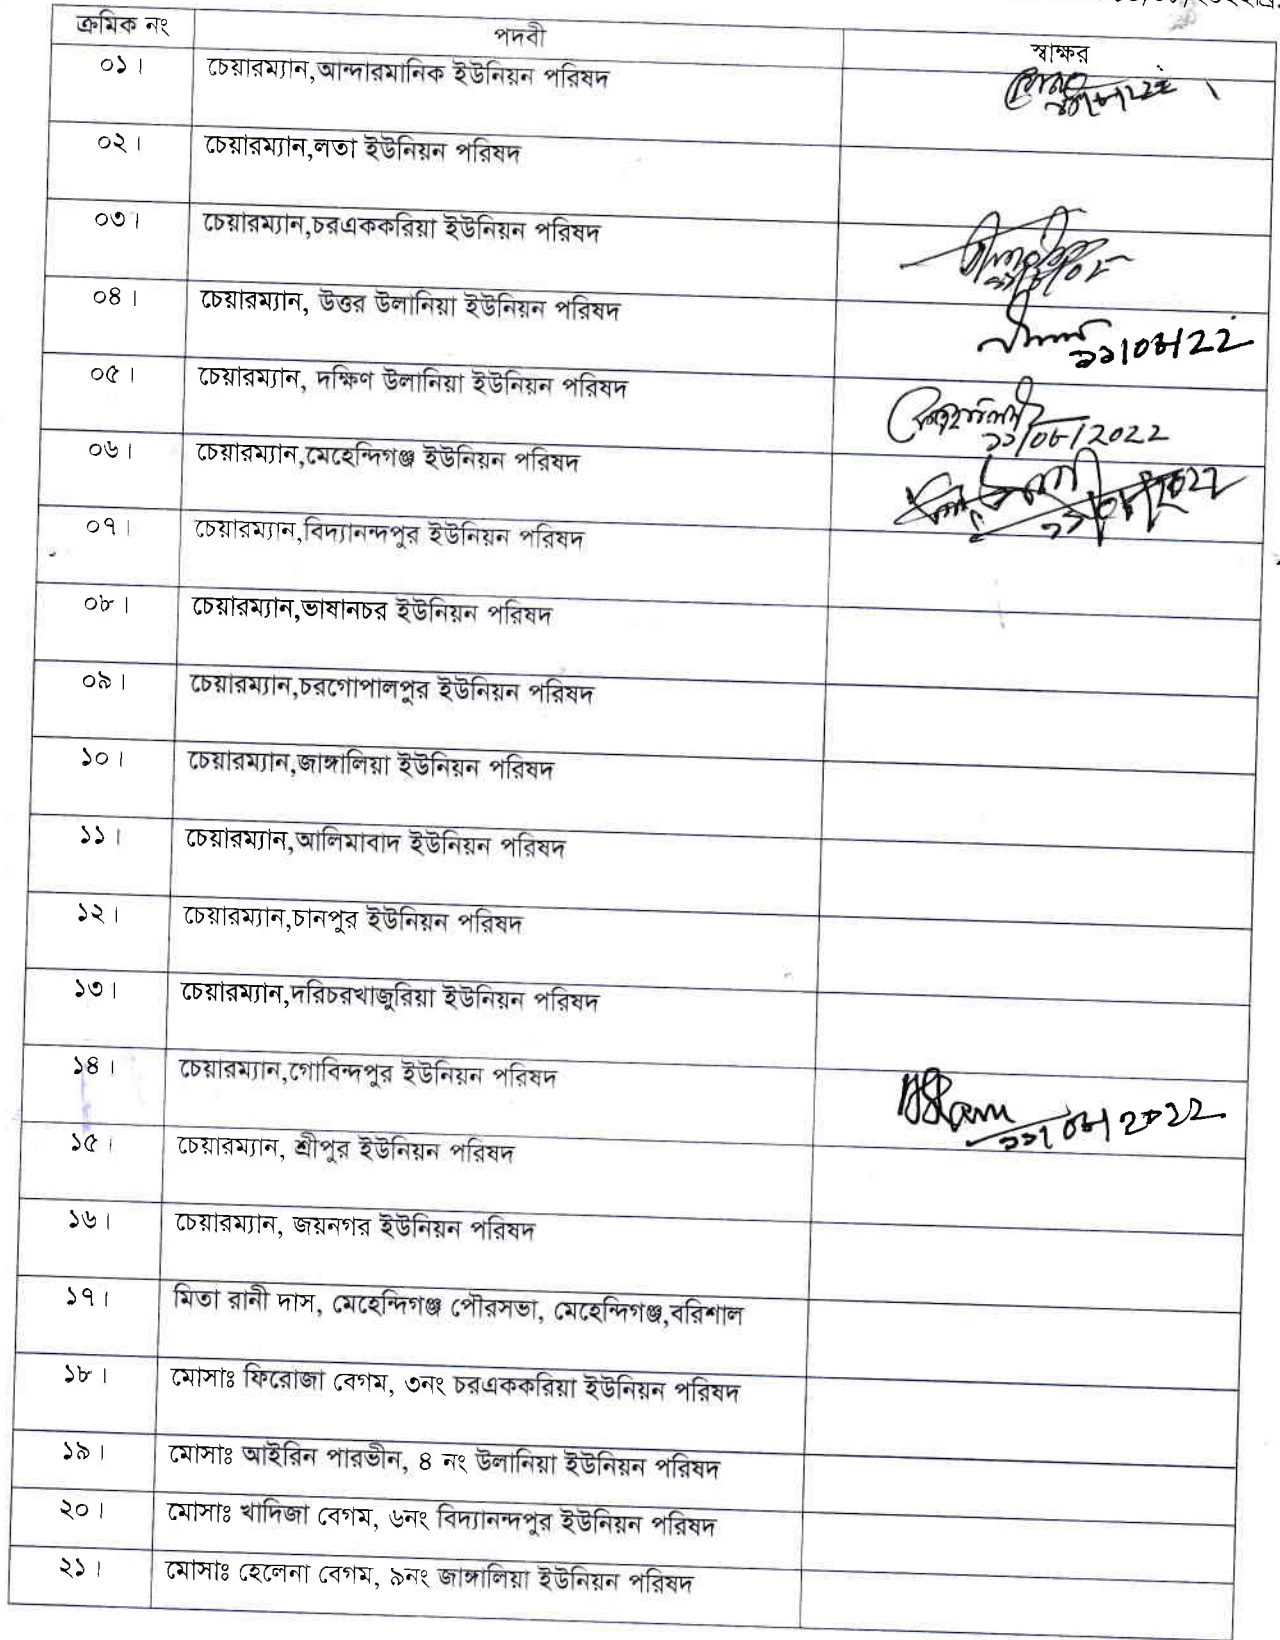 ক্রমিক নং পদবী স্বাক্ষর
০১। চেয়ারম্যান,আন্দারমানিক ইউনিয়ন পরিষদ
০২। চেয়ারম্যান,লতা ইউনিয়ন পরিষদ
০৩। চেয়ারম্যান,চরএককরিয়া ইউনিয়ন পরিষদ
০৪। চেয়ারম্যান, উত্তর উলানিয়া ইউনিয়ন পরিষদ ১১/০৮/২২
০৫। চেয়ারম্যান, দক্ষিণ উলানিয়া ইউনিয়ন পরিষদ ১১/০৮/২০২২
০৬। চেয়ারম্যান,মেহেন্দিগঞ্জ ইউনিয়ন পরিষদ
০৭। চেয়ারম্যান,বিদ্যানন্দপুর ইউনিয়ন পরিষদ
০৮। চেয়ারম্যান,ভাষানচর ইউনিয়ন পরিষদ
০৯। চেয়ারম্যান,চরগোপালপুর ইউনিয়ন পরিষদ
১০। চেয়ারম্যান,জাঙ্গালিয়া ইউনিয়ন পরিষদ
১১। চেয়ারম্যান,আলিমাবাদ ইউনিয়ন পরিষদ
১২। চেয়ারম্যান,চানপুর ইউনিয়ন পরিষদ
১৩। চেয়ারম্যান,দরিচরখাজুরিয়া ইউনিয়ন পরিষদ
১৪। চেয়ারম্যান,গোবিন্দপুর ইউনিয়ন পরিষদ ১১/০৮/২০২২
১৫। চেয়ারম্যান, শ্রীপুর ইউনিয়ন পরিষদ
১৬। চেয়ারম্যান, জয়নগর ইউনিয়ন পরিষদ
১৭। মিতা রানী দাস, মেহেন্দিগঞ্জ পৌরসভা, মেহেন্দিগঞ্জ,বরিশাল
১৮। মোসাঃ ফিরোজা বেগম, ৩নং চরএককরিয়া ইউনিয়ন পরিষদ
১৯। মোসাঃ আইরিন পারভীন, ৪ নং উলানিয়া ইউনিয়ন পরিষদ
২০। মোসাঃ খাদিজা বেগম, ৬নং বিদ্যানন্দপুর ইউনিয়ন পরিষদ
২১। মোসাঃ হেলেনা বেগম, ৯নং জাঙ্গালিয়া ইউনিয়ন পরিষদ